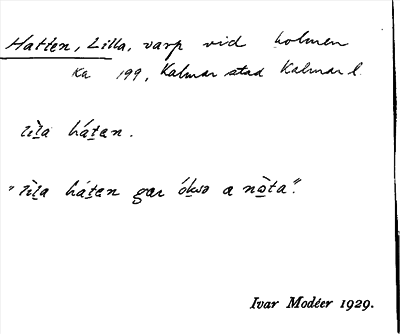 Hatten, Lilla, varp vid holmen
Ka 199, Kalmar stad Kalmar l.
lìla hátan.
"lìla hátan gar ókso a nòta".
Ivar Modéer 1929.